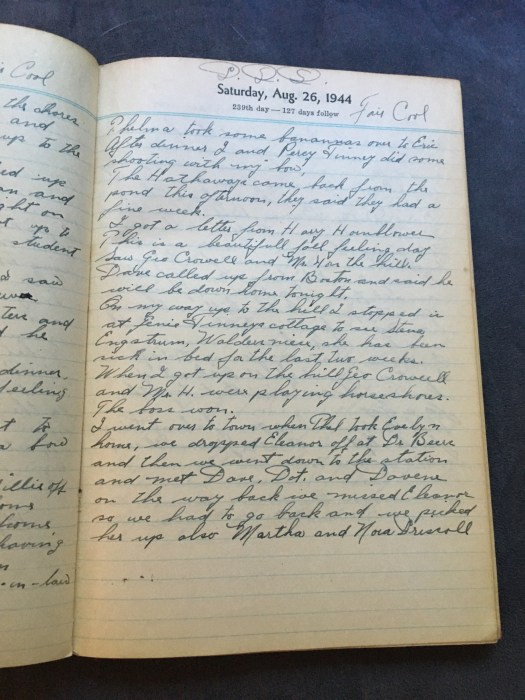 Cool
the chores
and
up to the
up
and
ght on
up to
student
saw
and
he
dinner,
feeling
to
a bow
off
homes
having
in-law
Saturday, Aug. 26, 1944
239th day — 127 days follow
Fair Cool
Thelma took some banannas over to Eric
After dinner I and Percy Tinney did some
shooting with my bow.
The Hathaways came back from the
pond this afternoon, they said they had a
fine week.
I got a letter from Harry Hornblower
This is a beautifull fall feeling day
Saw Geo Crowell and Mr H on the hill.
Dave called up from Boston and said he
will be down home tonight.
On my way up to the hill I stopped in
at Jenis Tinneys cottage to see
Engstrum, Walders niece, she has been
sick in bed for the last two weeks.
When I got up on the hill Geo Crowell
and Mr H. were playing horseshoes.
The boss won.
I went over to town when Thel took Evelyn
home, we dropped Eleanor off at Dr Beers
and then we went down to the station
and met Dave, Dot, and Davene
on the way back we missed Eleanor
so we had to go back and we picked
her up also Martha and Nora Driscoll